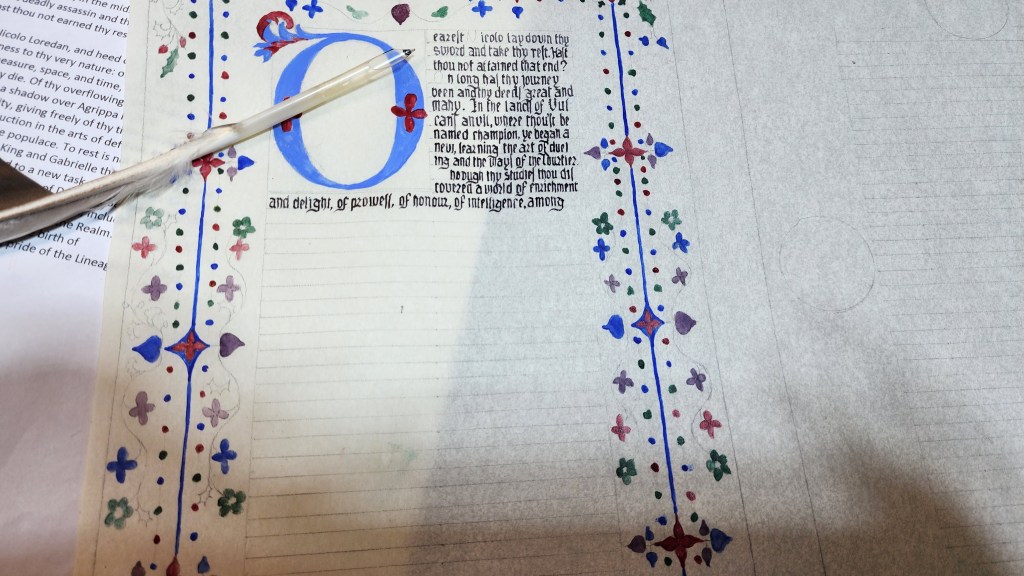 in the mid
deadly assassin and th
st thou not earned thy res
licolo Loredan, and heed
ness to thy very nature: o
easure, space, and time,
y die. Of thy overflowing
a shadow over Agrippa
ity, giving freely of thy ti
uction in the arts of def
e populace. To rest is n
King and Gabrielle th
to a new task
inclu
e Realm.
birth of
pride of the Lineag
O
earest icolo lay down thy
sword and take thy rest. Hast
thou not attained that end?
n long has thy journey
been and thy deeds great and
many. In the lands of Vul
cans anvil, where thou'lt be
named champion, ye began a
new, learning the art of duel
ing and the ways of the courtier.
hrough thy studies thou dis
covered a world of enrichment
and delight, of prowess, of honour, of intelligence, among